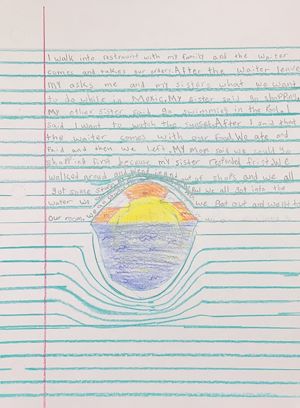 I walk into restraunt with my family and the waiter
comes and takes our orders. After the waiter leave
my asks me and my sisters what we want
to do while in Mexic. My sister said go shopping
My other sister said go swimming in the Pool, I
Said I want to watch the sunset. After I said that
the waiter comes with our food. We ate and
Paid and then we left. My Mom said we could go
shopping first because my sister
walked aroud and went in of shops and we all
got some we all got into the
water we got out and went to
our room. we